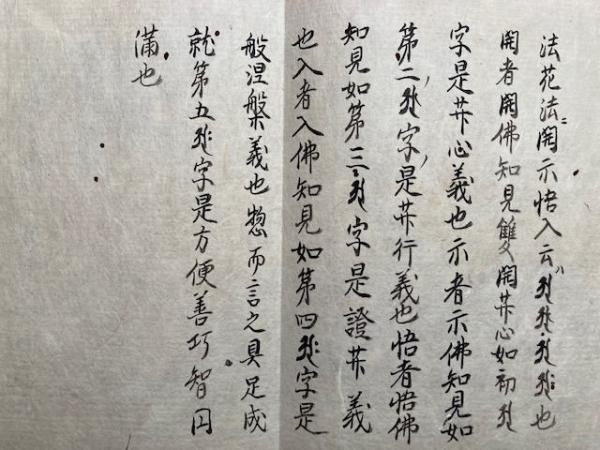 法花法ニ開示悟入云ハ𑖀𑖁𑖀𑖽𑖀𑖾也
開者開佛知見雙開𦬇心如初𑖀
字是𦬇心義也示者示佛知見如
第二𑖁字是𦬇行義也悟者悟佛
知見如第三𑖀𑖽字是證𦬇義
也入者入佛知見如第四𑖀𑖾字是
般涅槃義也惣而言之具足成
就第五𑖁𑖾字是方便善巧智円
満也